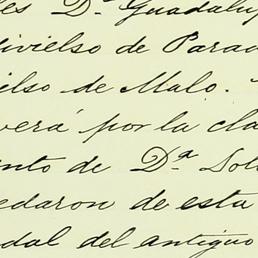 es D.ª Guadalup
ivielso de Parad
ielso de Malo.
verá por la cla
nto de D.ª Sol
edaron de esta
dal del antiguo